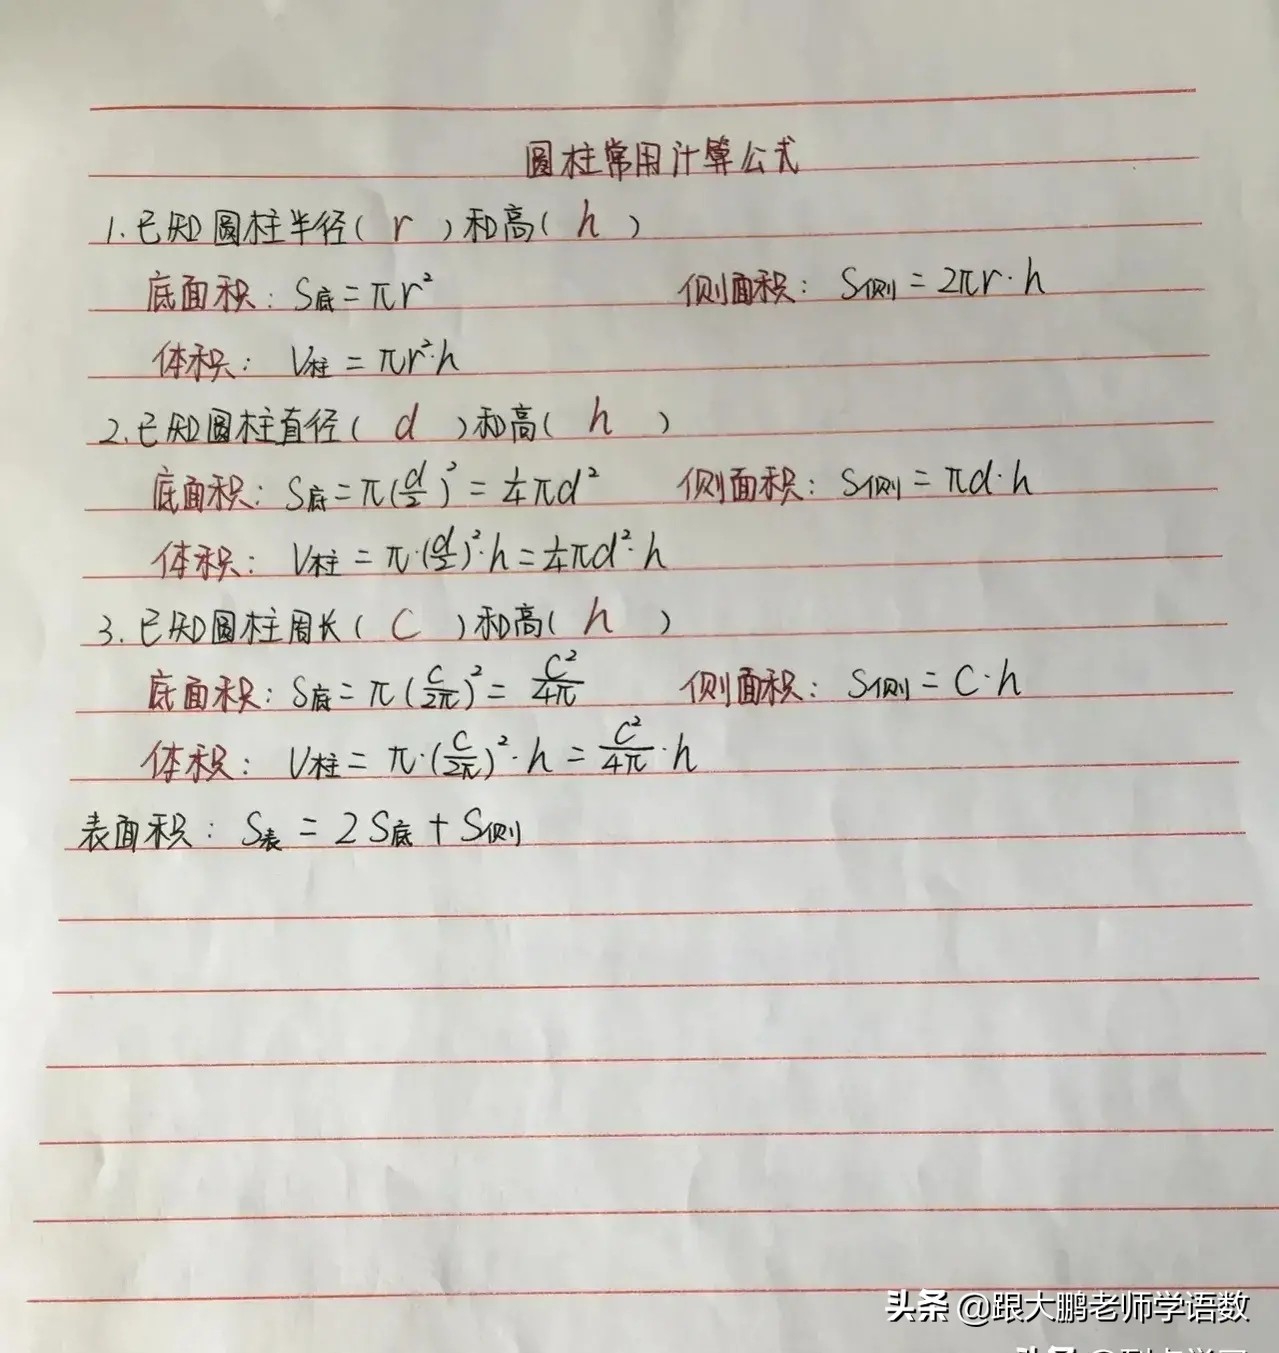 圆柱常用计算公式
1.已知圆柱半径( r )和高( h )
底面积: S底=πr² 侧面积: S侧=2πr·h
体积: V柱=πr²·h
2.已知圆柱直径( d )和高( h )
底面积: S底=π(d/2)²=1/4πd² 侧面积: S侧=πd·h
体积: V柱=π·(d/2)²·h=1/4πd²·h
3.已知圆柱周长( C )和高( h )
底面积: S底=π(C/2π)²=C²/4π 侧面积: S侧=C·h
体积: V柱=π·(C/2π)²·h=C²/4π·h
表面积: S表=2S底+S侧
头条 @跟大鹏老师学语数